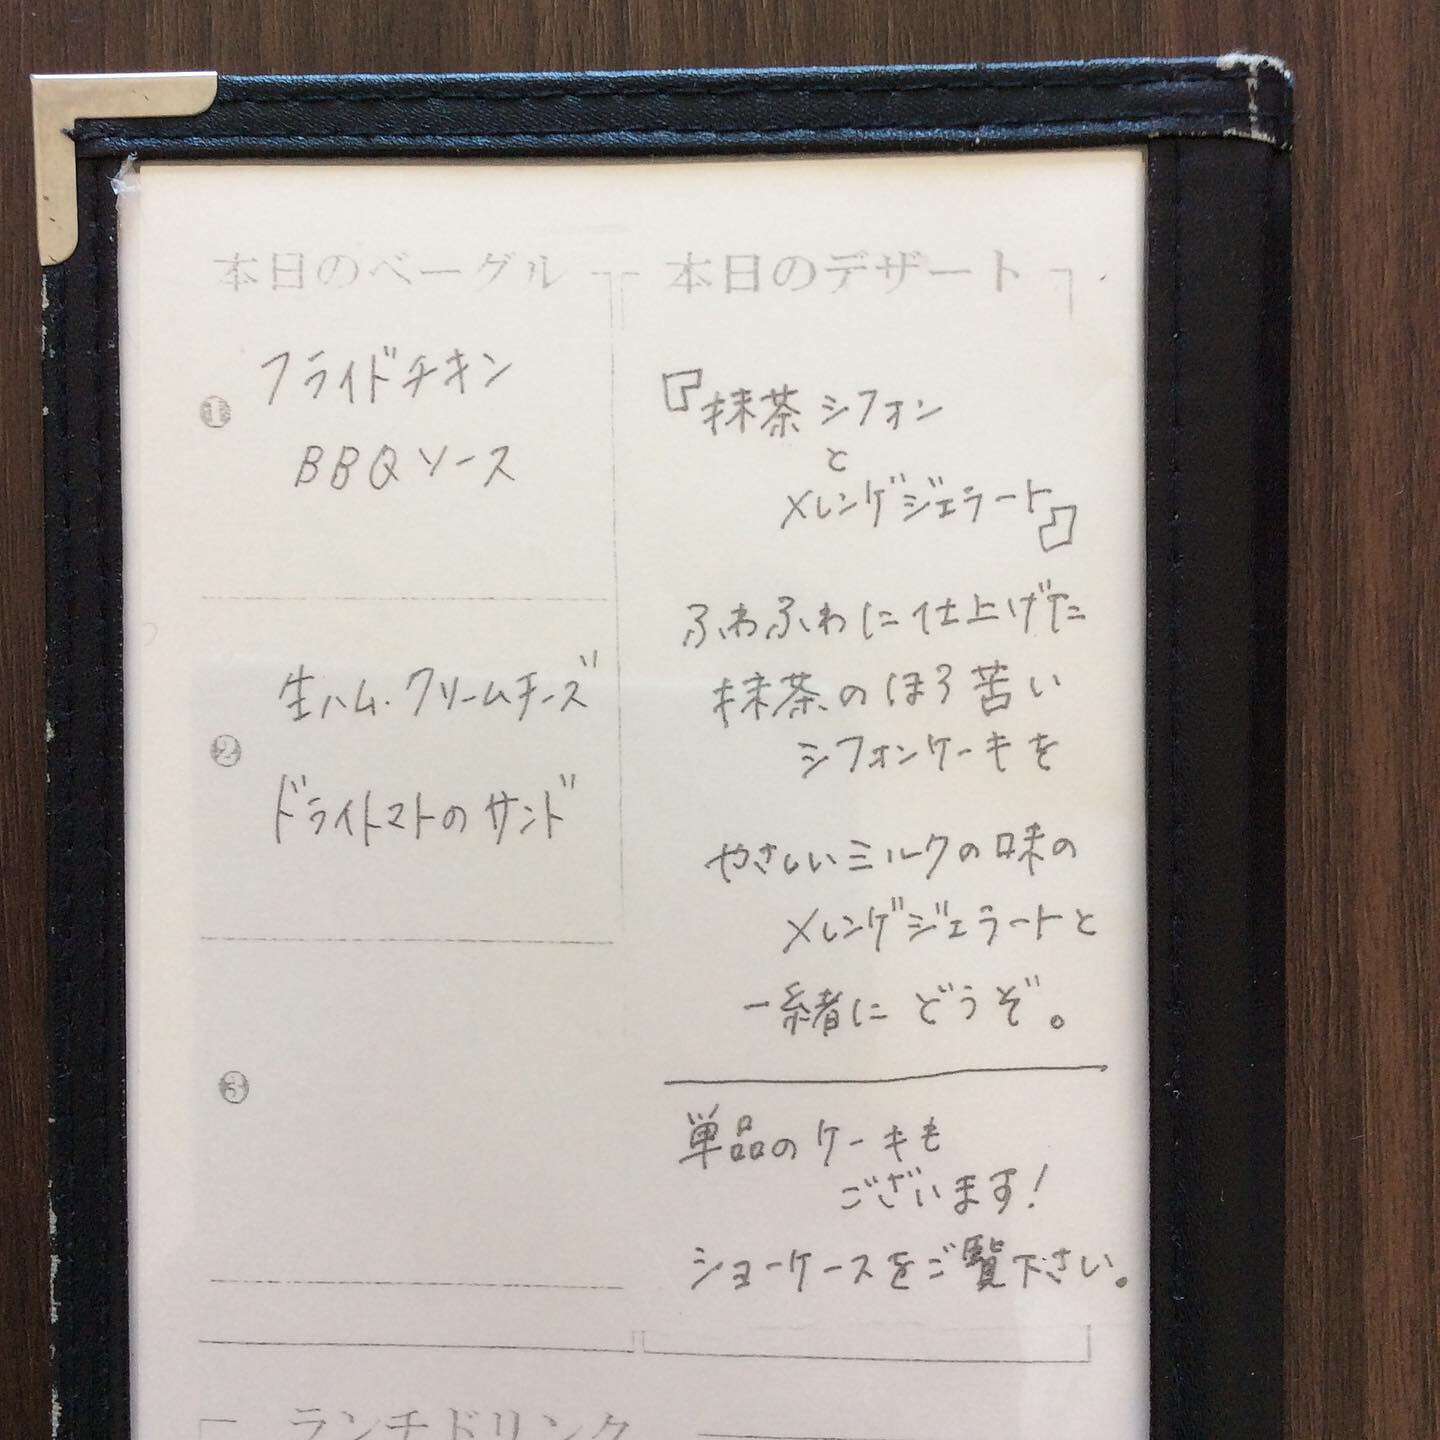 本日のベーグル
❶
フライドチキン
BBQソース
❷
生ハム・クリームチーズ
ドライトマトのサンド
❸
本日のデザート
『抹茶シフォン
と
メレンゲジェラート』
ふわふわに仕上げた
抹茶のほろ苦い
シフォンケーキを
やさしいミルクの味の
メレンゲジェラートと
一緒にどうぞ。
単品のケーキも
ございます!
ショーケースをご覧下さい。
ランチドリンク